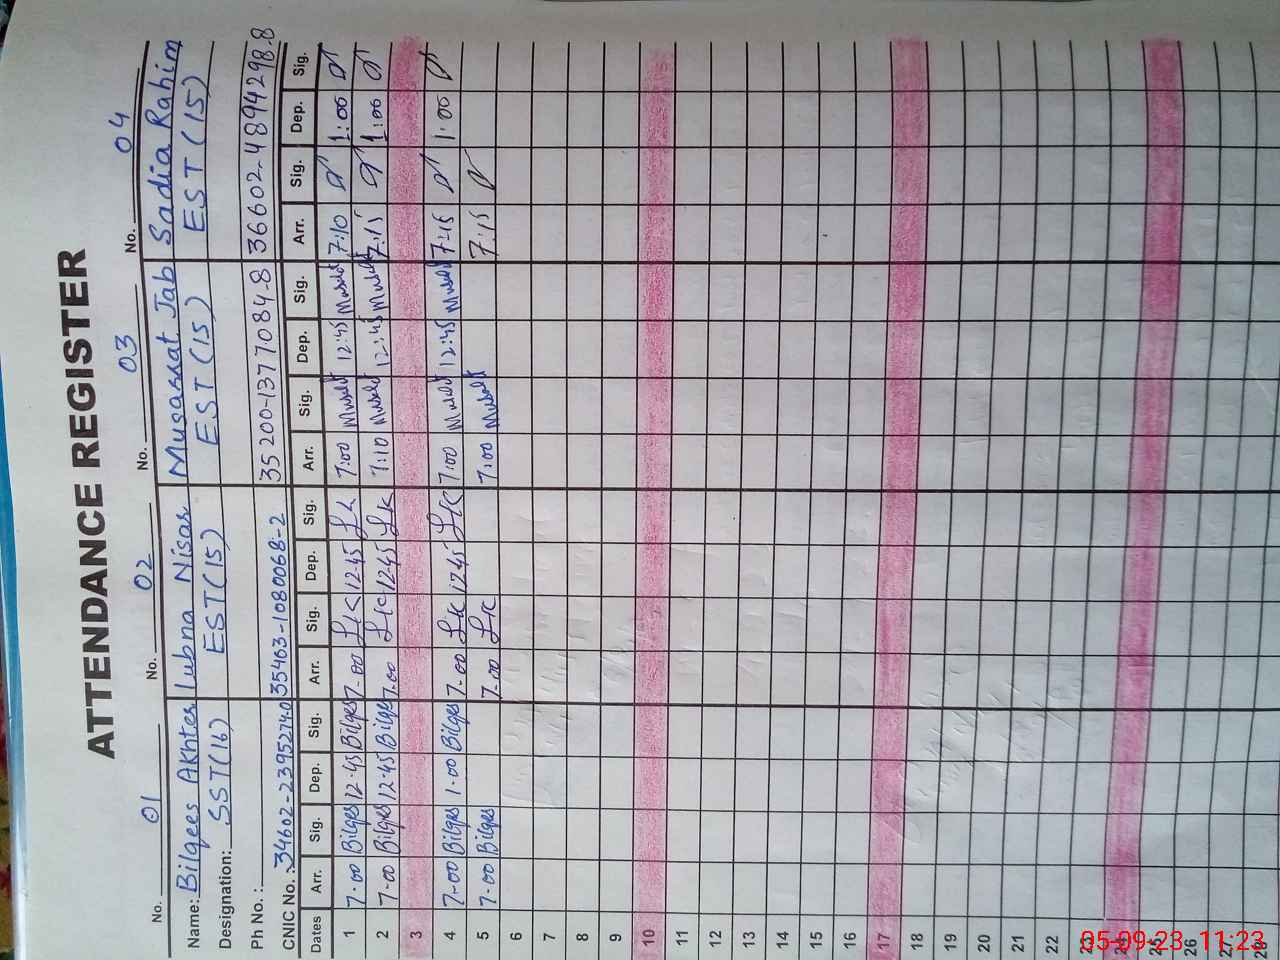 ATTENDANCE REGISTER
No. 01 No. 02 No. 03 No. 04
Name: Bilqees Akhter Lubna Nisar Musarrat Jab Sadia Rahim
Designation: SST(16) EST(15) EST(15) EST(15)
Ph No. :
CNIC No. : 34602-2395274-0 35463-1080068-2 35200-1377084-8 36602-4894298-8
Dates Arr. Sig. Dep. Sig. Arr. Sig. Dep. Sig. Arr. Sig. Dep. Sig. Arr. Sig. Dep. Sig.
1 7-00 Bilqes 12-45 Bilqes 7-00 12-45 7:00 12:45 7:10 1:00
2 7-00 Bilqes 12-45 Bilqes 7-00 12-45 7:10 12:45 7:15 1:00
3
4 7-00 Bilqes 1-00 Bilqes 7-00 12-45 7:00 12:45 7:15 1:00
5 7-00 Bilqes 7-00 7:00 7:15
6
7
8
9
10
11
12
13
14
15
16
17
18
19
20
21
22
23
24
25
26
27
28
05-09-23 11:23